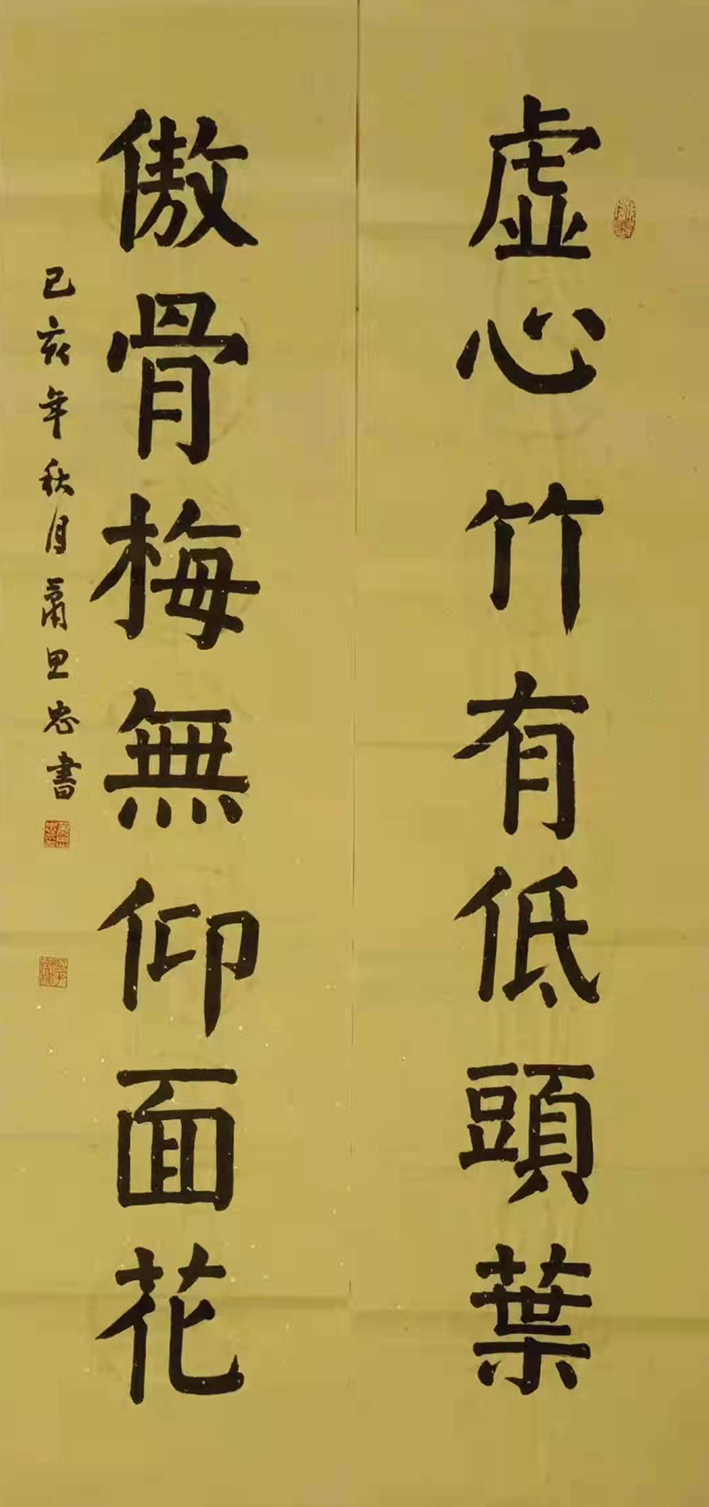 虛心竹有低頭葉
傲骨梅無仰面花
己亥年秋月蕭思忠書